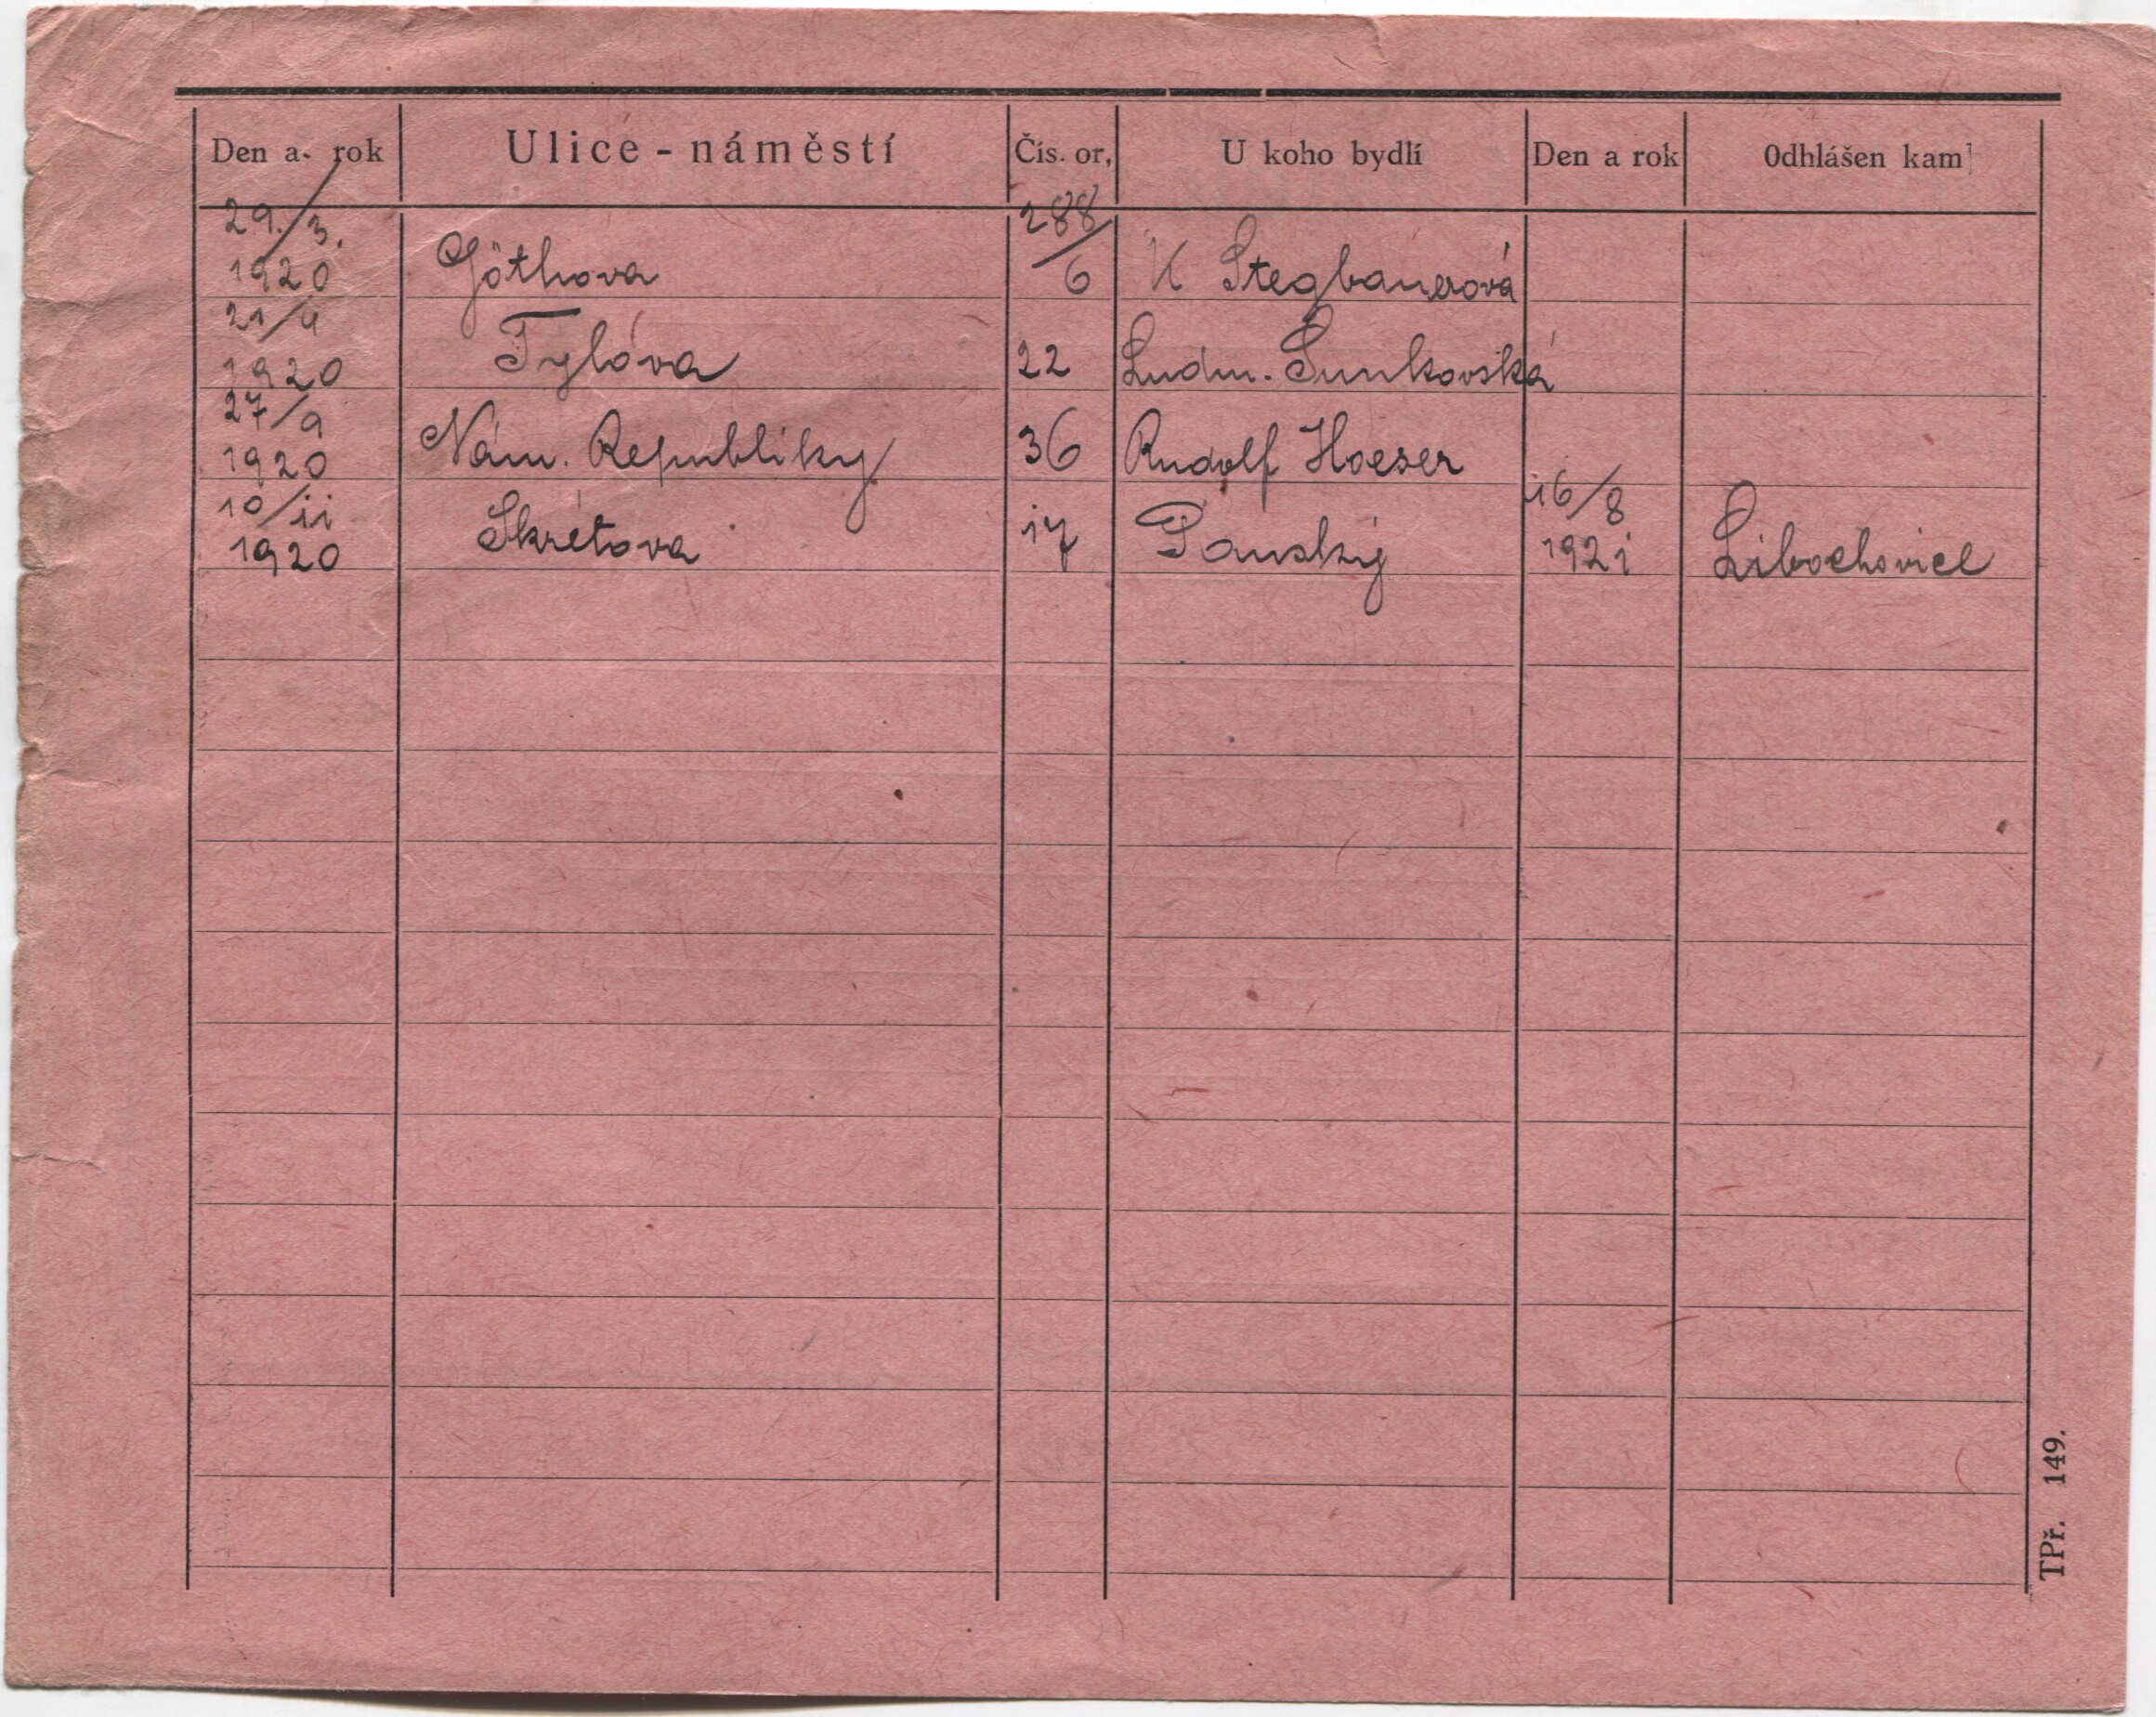 Den a rok Ulice - náměstí Čís. or, U koho bydlí Den a rok Odhlášen kam
29./3. 288/
1920 Göthova 6 K Stegbauerová
21/4
1920 Tylova 22 Ludm. Sunkovská
27/9
1920 Nám. Republiky 36 Rudolf Hoeser
10/ii 16/8
1920 Skrétova 17 Panský 1921 Libochovice
TPř. 149.